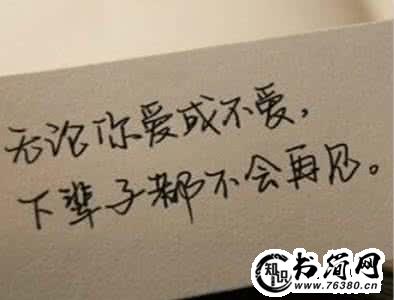 无论你爱或不爱，
下辈子都不会再见。
知识
书简网
www.76380.cn